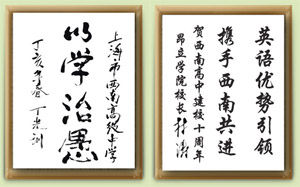 上海市西南高级中学
以学治愚
丁亥年春 丁光训
英语优势引领
携手西南共进
贺西南高中建校十周年
昂立学院校长